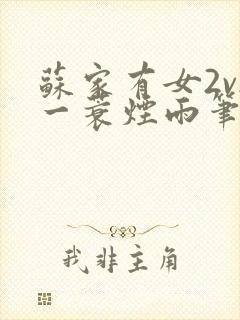 蘇家有女2v
一蓑煙雨筆
我非主角